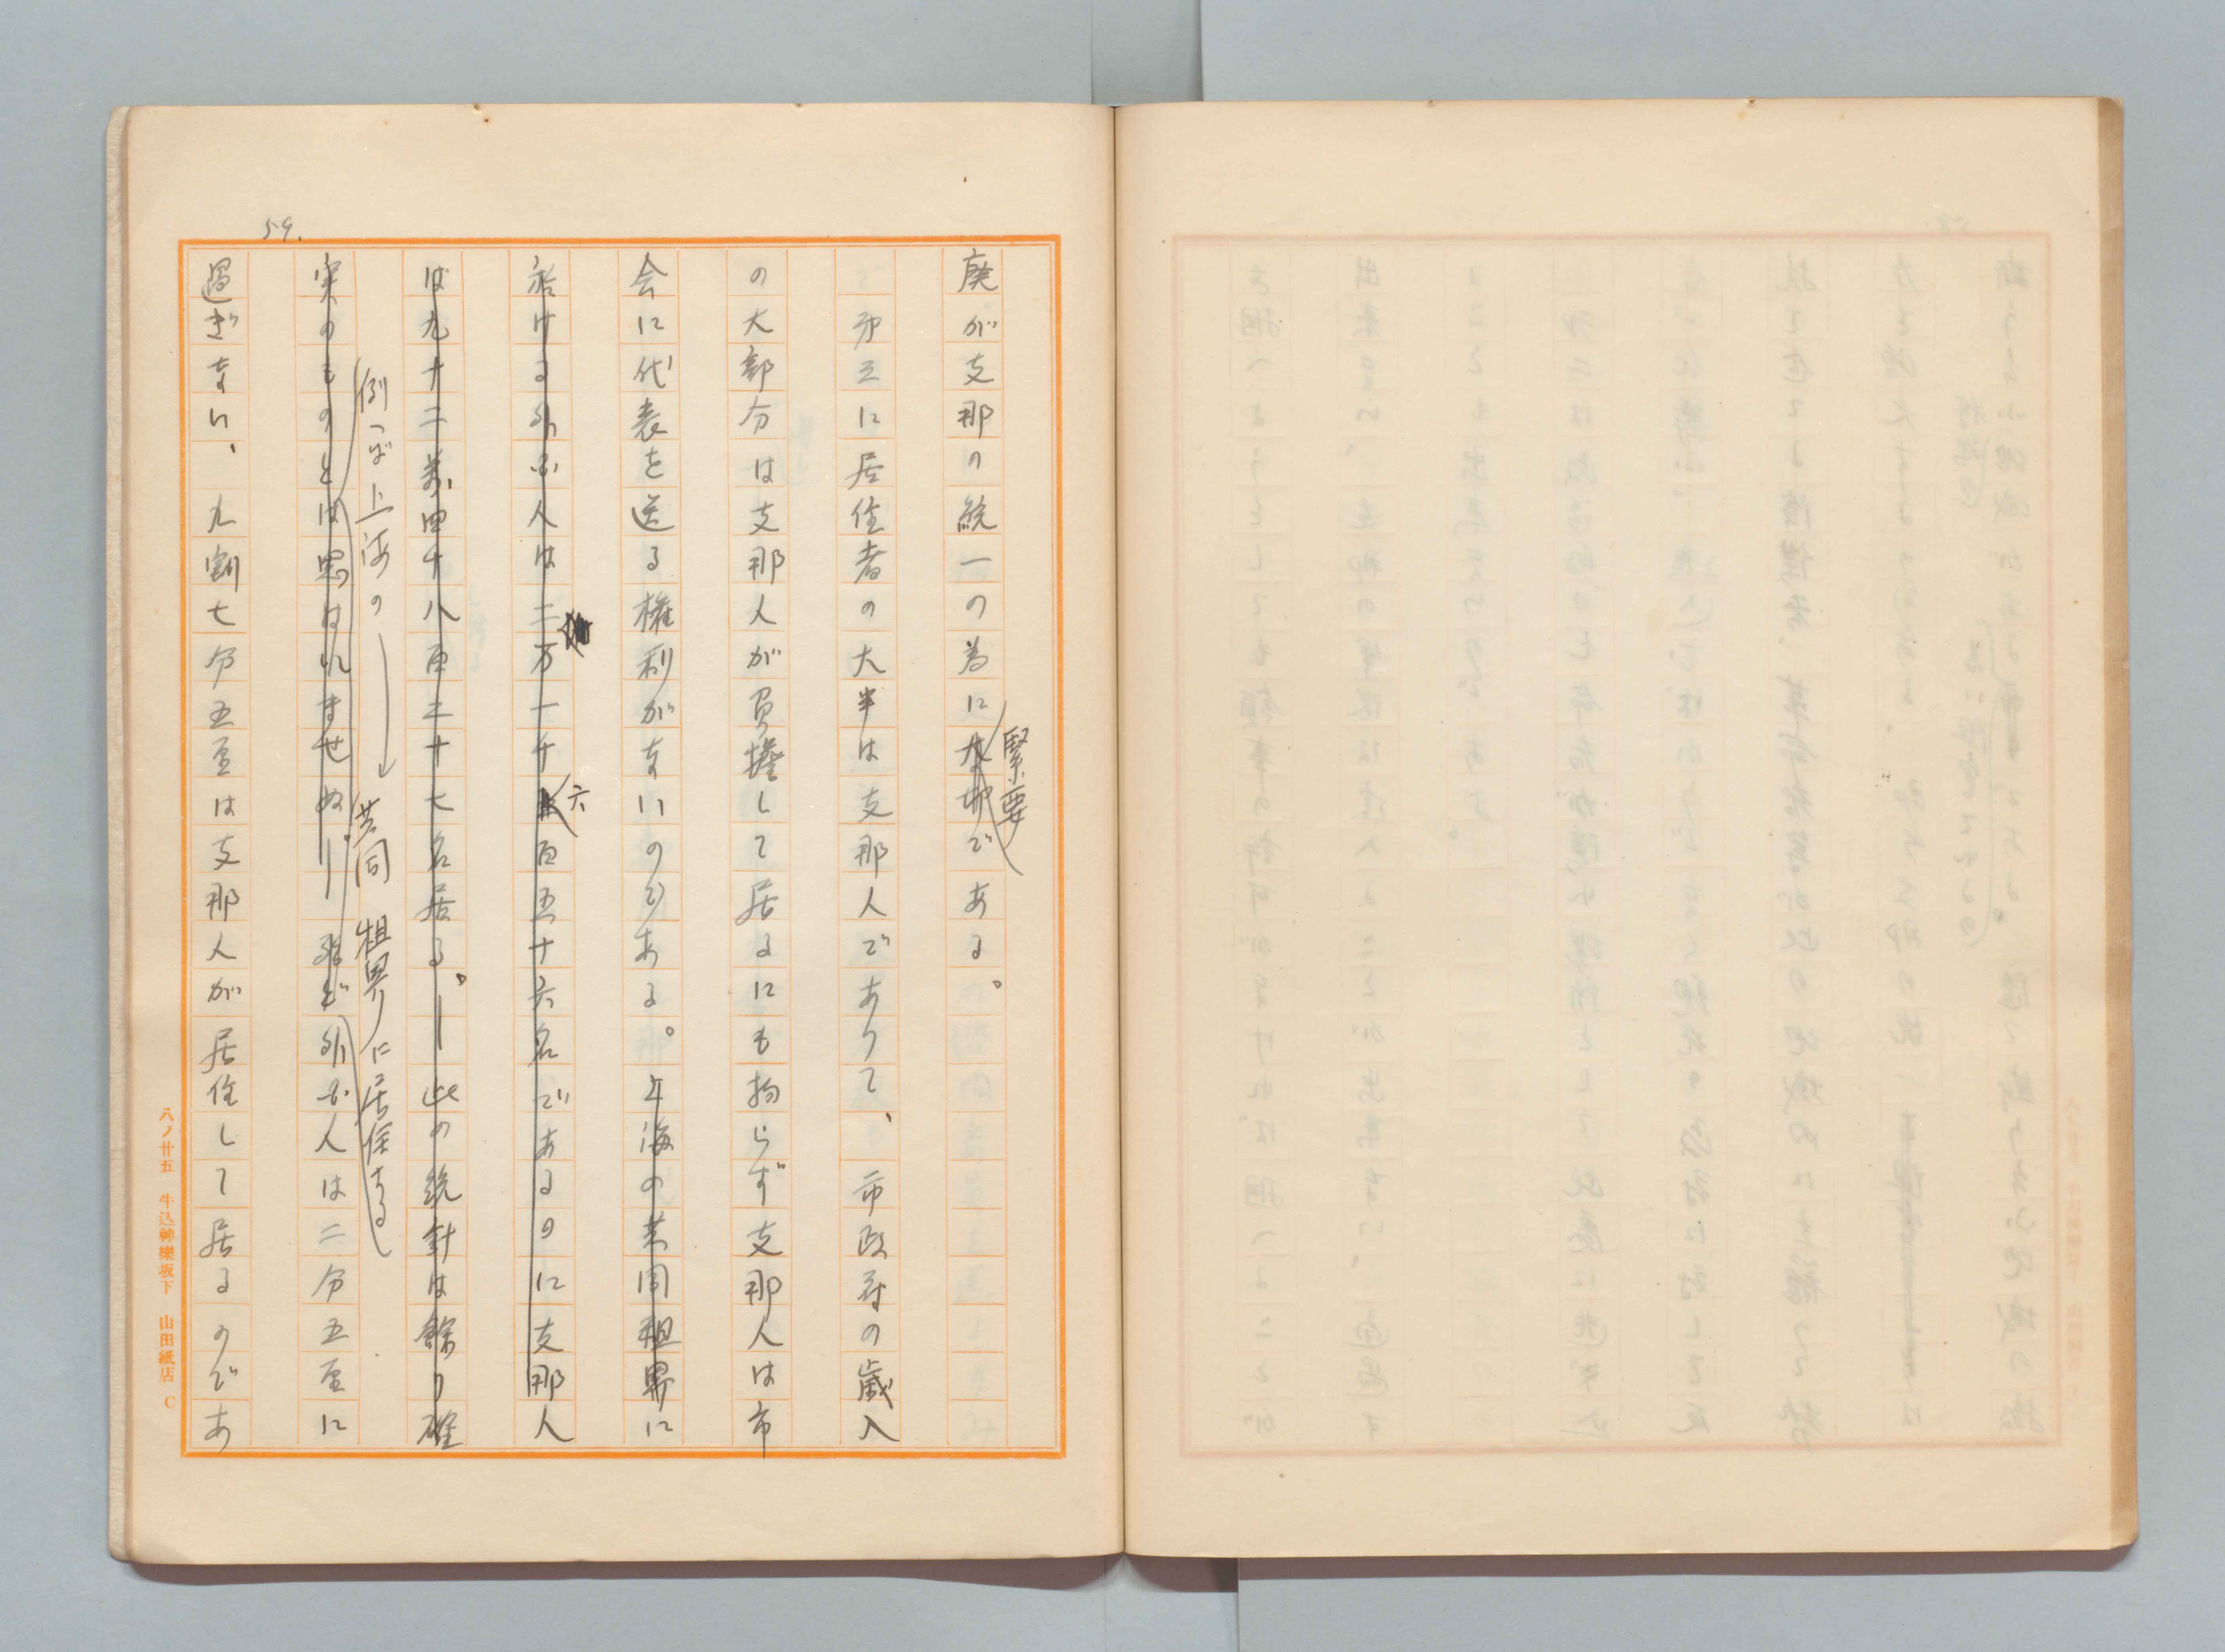 59.
廃が支那の統一の為に大切である。
緊要
第三に居住者の大半は支那人でありて、市政府の歳入
の大部分は支那人が負擔して居るにも拘らず支那人は市
会に代表を送る権利がないのである。上海の共同租界に
於ける外国人は二万一千五百五十六名であるのに支那人
六
は九十二萬四十八百三十六名居る。― 此の統計は餘り確
例へば上海の
共同租界に居住する
実のものとは思はれませぬ。― 外国人は二分五厘に
過ぎない、九割七分五厘は支那人が居住して居るのであ
八ノ廿五 牛込神樂坂下 山田紙店 C